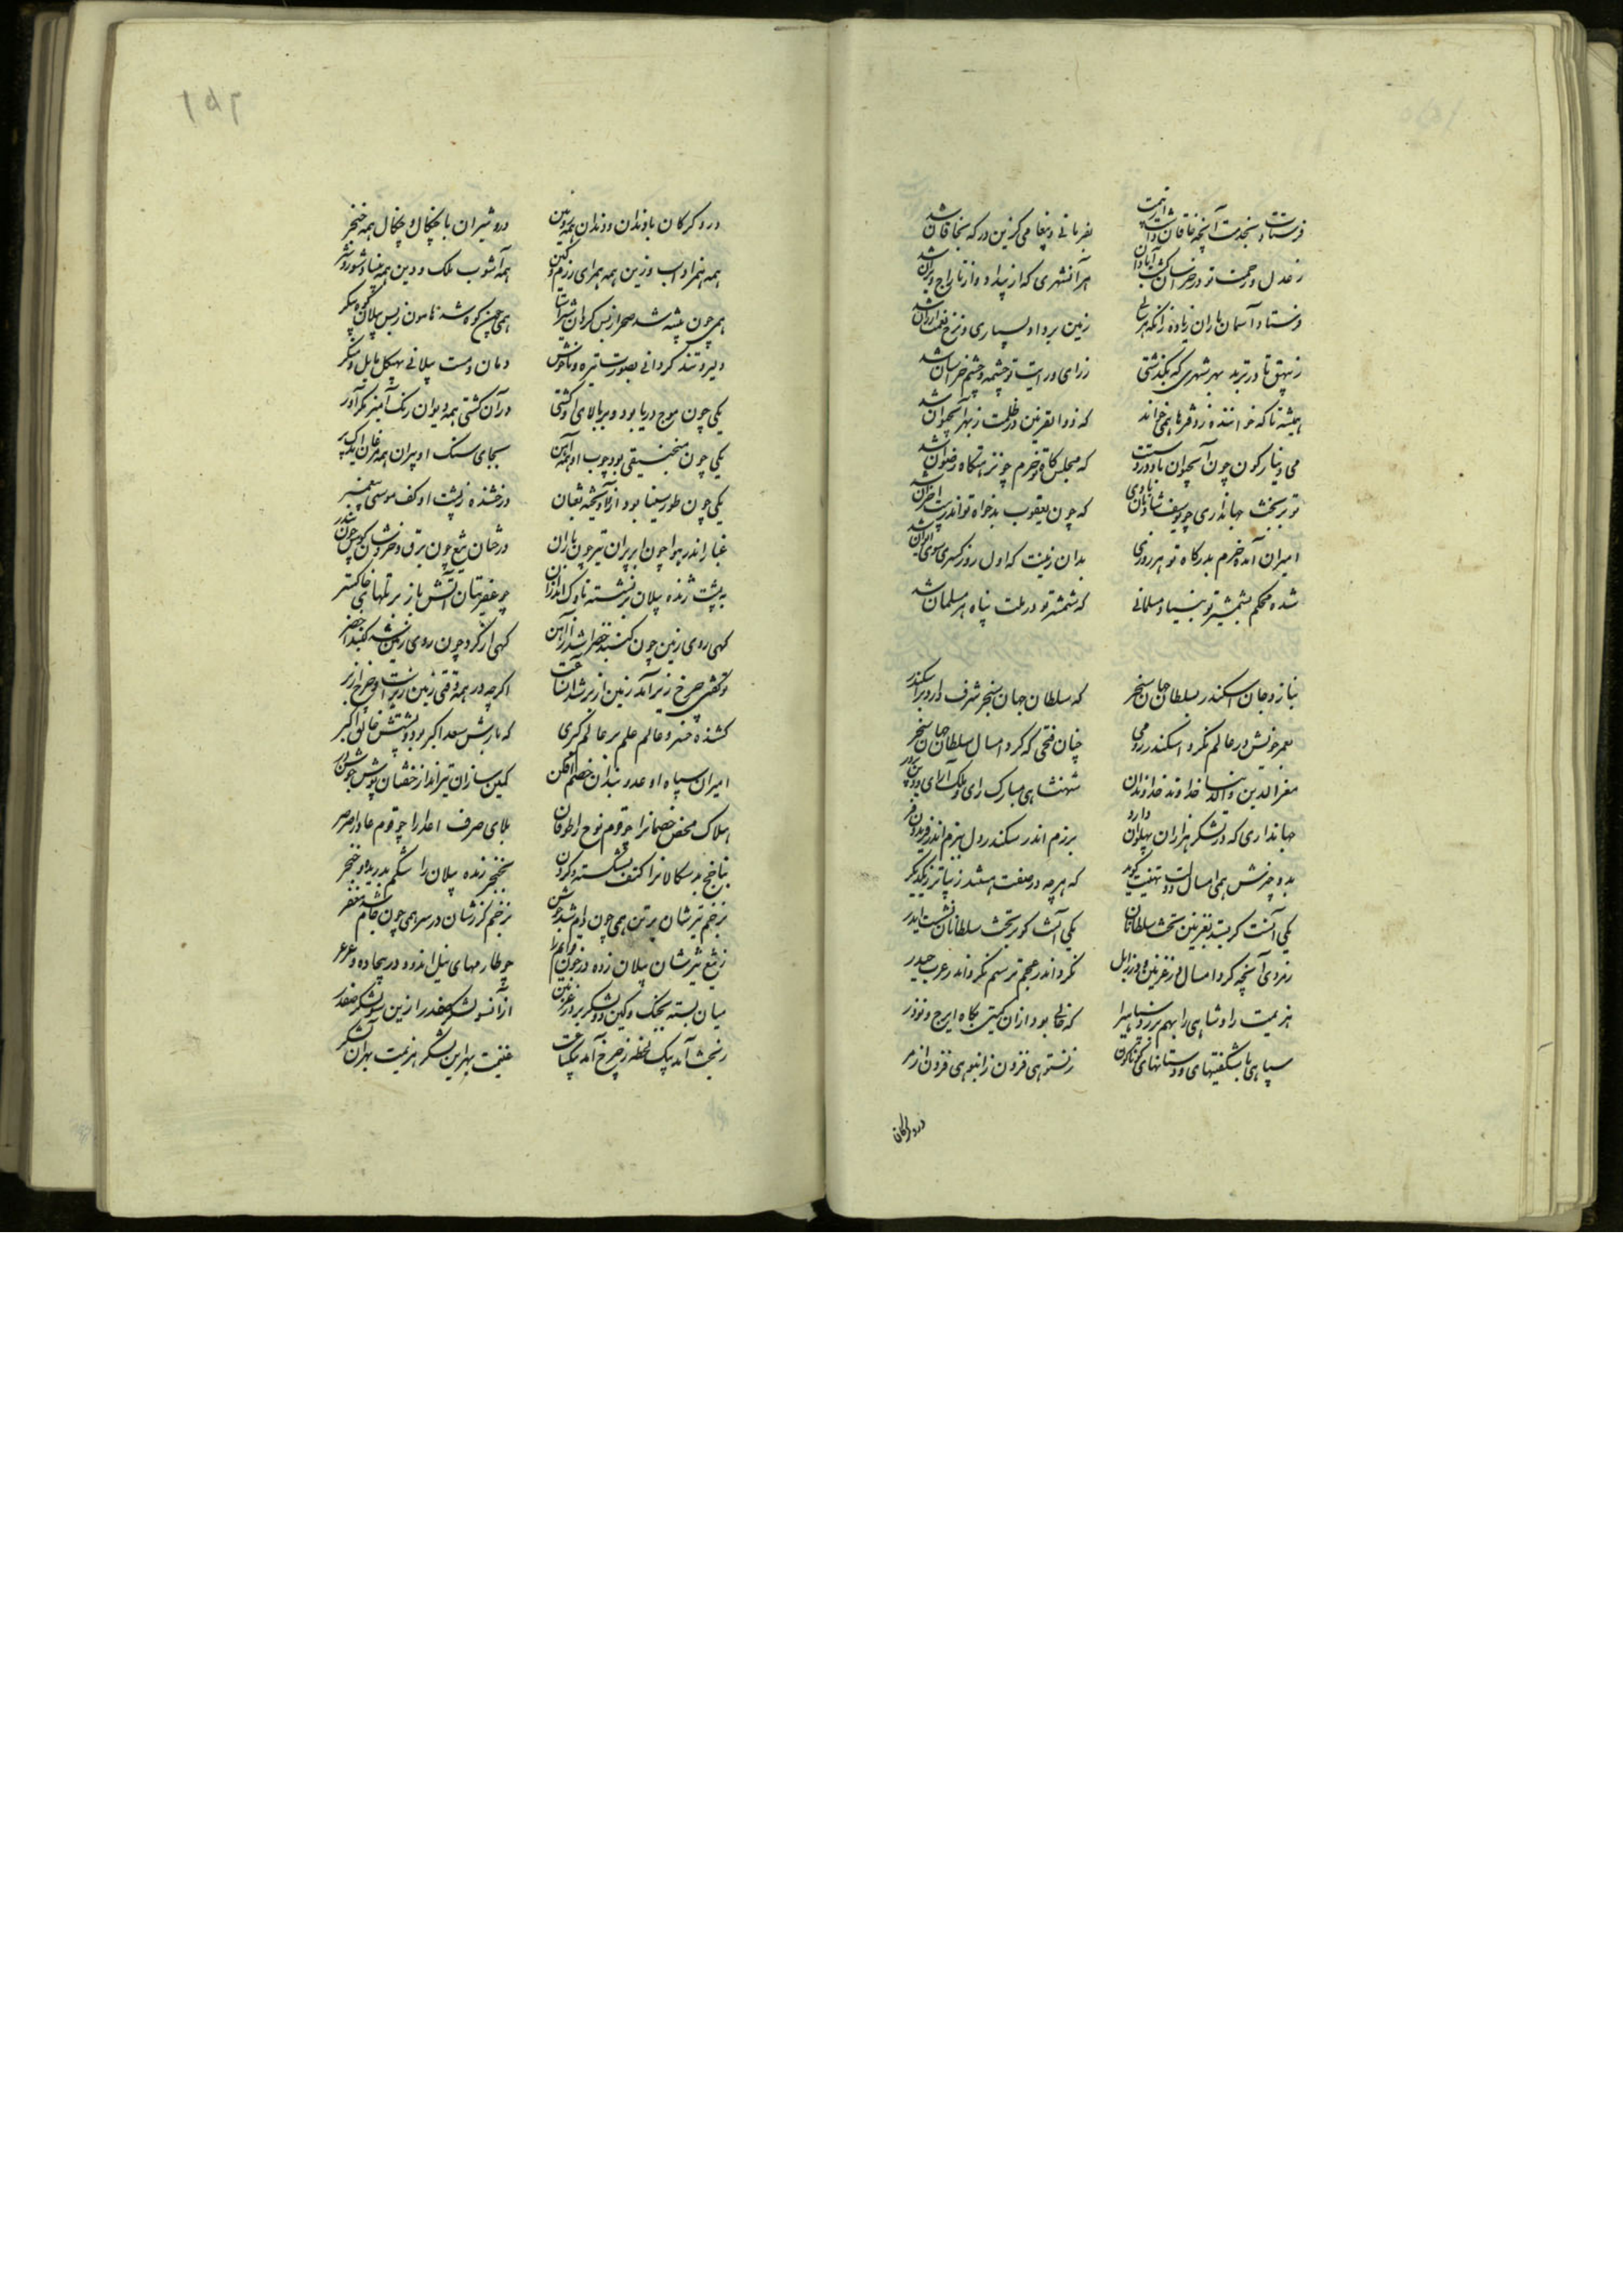 فرستادت بخدمت آنچه خاقان داشت از نعمت
بفرمانی و پیغامی کزین درگه بخاقان شد
ز عدل و رحمت تو در خراسان گشت آبادان
هر آنشهری که از بیداد و از تاراج ویران شد
فرستاد آسمان باران زیاده زانکه هر سالی
زمین بر داد بسیاری و نرخ نعمت ارزان شد
ز بیهق تا در ترمد بهر شهری که بگذشتی
ز رای و رایت تو چشمه و چشم خراسان شد
همیشه تا که خواننده ز دفترها همی خواند
که ذوالقرنین در ظلمت ز بهر آبحیوان شد
می دینارگون چون آبحیوان باد در دستت
که مجلس گاه تو خرم چو نزهتگاه رضوان شد
تو بر تخت جهانداری چو یوسف شادمان بادی
که چون یعقوب بدخواه تو اندر بیت احزان شد
امیران آمده خرم بدرگاه تو هر روزی
بدان زینت که اول روز کسری سوی ایوان شد
شده محکم بشمشیر تو بنیاد مسلمانی
که شمشیر تو در ملت پناه هر مسلمان شد
بنازد جان اسکندر بسلطان جهان سنجر
که سلطان جهان سنجر شرف دارد بر اسکندر
بعمر خویش در عالم نکرد اسکندر رومی
چنان فتحی که کرد امسال سلطان جهان سنجر
معزالدین والدنیا خداوند خداوندان
شهنشاهی مبارک رای و ملک آرای و دین پرور
جهانداری که در لشکر هزاران پهلوان دارد
برزم اندر سکندر دل ببزم اندر فریدون فر
بدو چیزش همی امسال دولت تهنیت گوید
که هر چه در صفت هستند زیباتر ز یکدیگر
یکی آنست کو بستد بغزنین تخت سلطانان
یکی آنست کو بر تخت سلطانان نشست ایدر
ز مردی آنچه کرد امسال در غزنین و در زابل
نکرد اندر عجم رستم نکرد اندر عرب حیدر
هزیمت راد شاهی را بهم بر زد سپاهی را
که خالی بود ازان گیتی بگاه ایرج و نوذر
سپاهی با شگفتیهای و دستانهای گوناگون
ز نستوهی فزون ز انبوهی فزون از مر
درو گرگان
درو گرگان با دندان و دندان همه زوبین
درو شیران با چنگال و چنگال همه خنجر
همه همراه اسب و زین همه همرای رزم و کین
همه آشوب ملک و دین همه بنیاد شور و شر
همی چون بیشه شد صحرا ز بس گردان شیرآسا
همی چون کوه شد هامون ز بس پیلان که پیکر
دلیر و تند گردانی بصورت تیره و ناخوش
دمان و مست پیلانی بهیکل هایل و منکر
یکی چون موج دریا بود و بر بالای او کشتی
در آن کشتی همه دیوان رنگ آمیز مکرآور
یکی چون منجنیقی بود چوب او همه آهن
بجای سنگ او پران همه مرغان یک پر
یکی چون طور سینا بود ازو آویخته ثعبان
درخشنده ز پشت او کف موسی پیغمبر
غبار اندر هوا چون ابر پران تیر چون باران
درخشان تیغ چون برق و خروشان کوس چون تندر
به پشت ژنده پیلان بر نشسته ناوک اندازان
چو عفریتان آتش باز بر تلهای خاکستر
گهی روی زمین چون گنبد خضرا شد از آهن
گهی از گرد چون روی زمین شد گنبد اخضر
تو گفتی چرخ زیر آمد زمین از بر شد آنساعت
اگر چه در همه وقتی زمین زیرست و چرخ از بر
کشنده خسرو عالم علم بر عالم کبری
که بارش سعد اکبر بود و پشتش خالق اکبر
امیران سپاه او عدو بندان خصم افکن
کمین سازان تیرانداز خفتان پوش جوشن در
هلاک محض خصمانرا چو قوم نوح را طوفان
بلای صرف اعدا را چو قوم عاد را صرصر
بناخج بدسگالانرا کتف بشکسته و گردن
بخنجر زنده پیلان را شکم بدریده و خنجر
بزخم تیرشان بر تن همی چون دام شد جوشن
بزخم گرزشان در سر همی چون جام شد مغفر
ز تیغ تیزشان پیلان زده در خون قوایم را
چو طارمهای نیل اندود در بیجاده و عرعر
میان بسته بجنگ و کین دو لشکر بر در غزنین
از آنسو لشکر صفدر ازین سو لشکر صفدر
ز بخت آمد بیک لحظه ز چرخ آمد بیکساعت
غنیمت بهر این لشکر هزیمت بهر آن لشکر